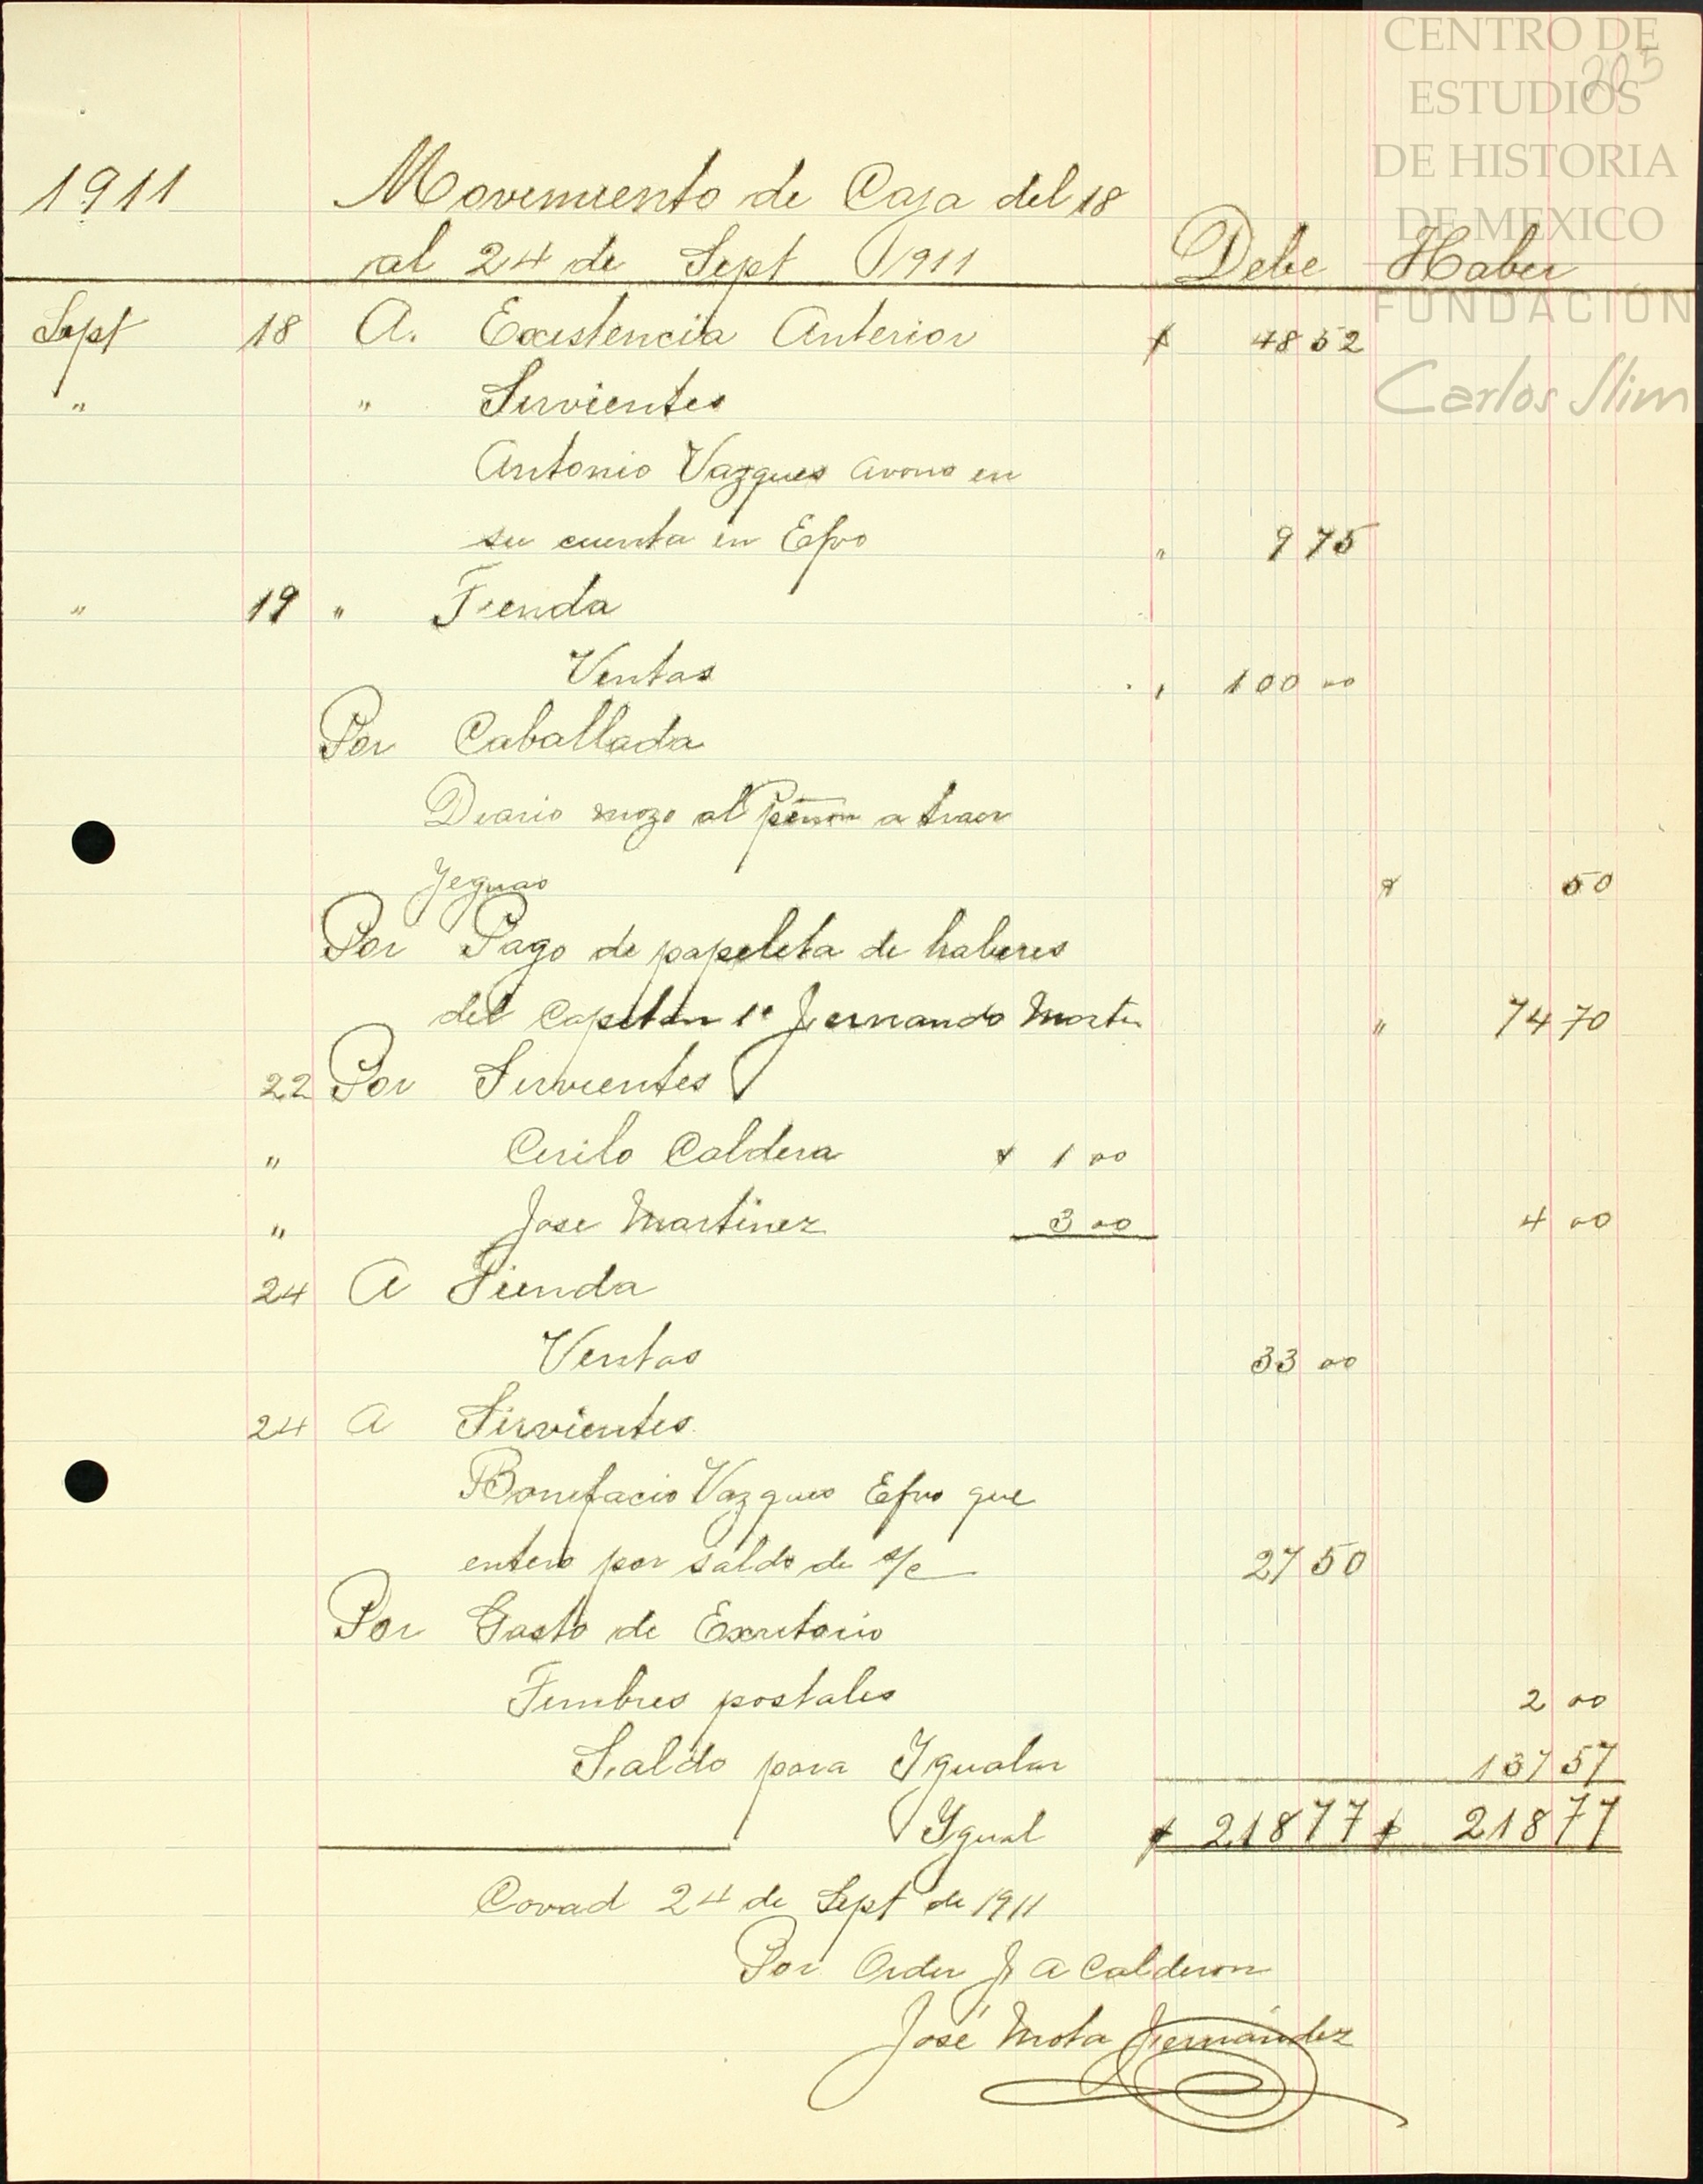 CENTRO DE
ESTUDIOS
DE HISTORIA
DE MEXICO
FUNDACIÓN
Carlos Slim
203
1911 Movimiento de Caja del 18
al 24 de Sept 1911 Debe Haber
Sept 18 A. Existencia Anterior $ 48 52
" " Sirvientes
Antonio Vazques avono en
su cuenta en Efvo " 9 75
" 19 " Tienda
Ventas " 100 00
Por Caballada
Diario mozo al peñon a traer
Yeguas $ 50
Por Pago de papeleta de haberes
del Capitan 1º Fernando Martz " 74 70
22 Por Sirvientes
" Cirilo Caldera $ 1 00
" Jose Martinez 3 00 4 00
24 A Tienda
Ventas 33 00
24 A Sirvientes
Bonifacio Vazques Efvo que
entero por saldo de s/c 27 50
Por Gasto de Excritorio
Timbres postales 2 00
Saldo para Ygualar 137 57
Ygual $ 218 77 $ 218 77
Covad 24 de Sept de 1911
Por Orden J A Calderon
José Mota Fernández